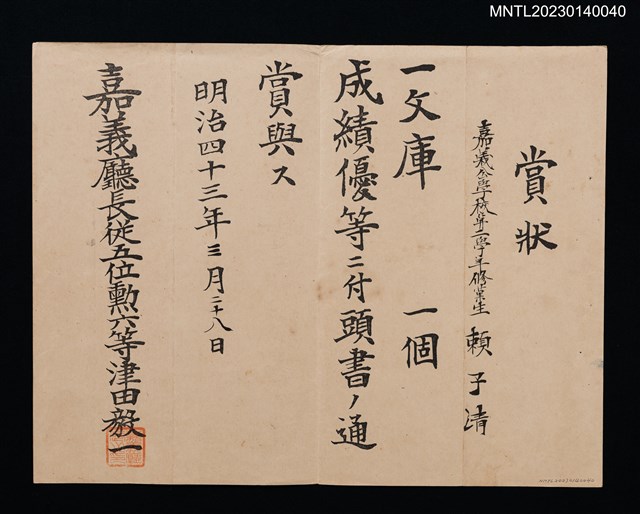 MNTL20230140040
賞狀
嘉義公學校第二學年修業生 賴子清
一文庫 一個
成績優等ニ付頭書ノ通
賞與ス
明治四十三年三月二十八日
嘉義廳長從五位勳六等津田毅一